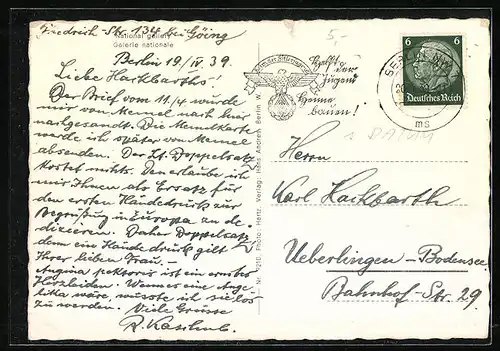 Friedrich-Str. 134 bei Göing
National galerie
Galerie nationale
Berlin 19/IV 39.
Liebe Harkbarths!
Der Brief vom 11/4 wurde
mir von Memel nach hier
nachgesandt. Die Memelkarte
werde ich später von Memel
absenden. Der Lt. Doppelsatz
kostet nichts. Den erlaube ich
mir Ihnen als Ersatz für
den ersten Händedruck zur
Begrüßung in Europa zu de-
dizieren. Daher Doppelsatz
denn ein Händedruck gilt
Ihrer lieben Frau. –
Angina pektoris ist ein ernstes
Herzleiden. Wenn es eine Ange-
lika wäre, müsste ich sie los
zu werden. Viele Grüsse
R.
Nr. 7210 Photo: Hertz. Verlag: Hans Andres, Berlin
5,-
Helft
der
Jugend
Heime
bauen!
6 6
Deutsches Reich
BERLIN
20
ms
1 DATUM
Herrn
Karl Harkbarth
Ueberlingen-Bodensee
Bahnhof-Str. 29